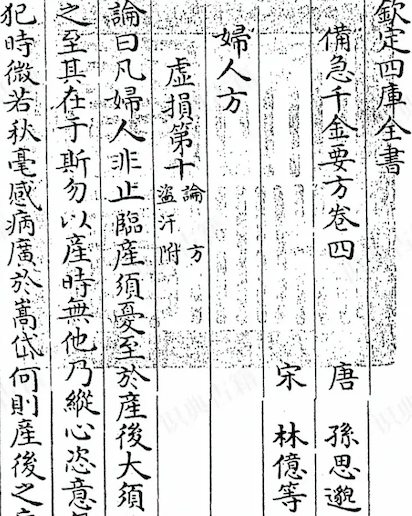 欽定四庫全書
備急千金要方卷四
唐 孫思邈
宋 林億等
婦人方
虛損第十論 方
盜汗附
論曰凡婦人非止臨產須憂至於產後大須
之至其在于斯勿以產時無他乃縱心恣意
犯時微若秋毫感病廣於嵩岱何則產後之